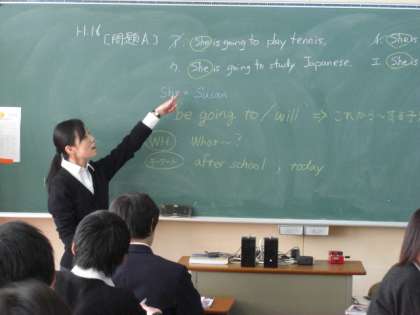 H.16 [問題A] ア. She is going to play tennis. イ. She is
ウ. She is going to study Japanese. エ. She is
She = Susan
be going to / will ⇒ これから〜する予
WH What〜?
キーワード after school, today